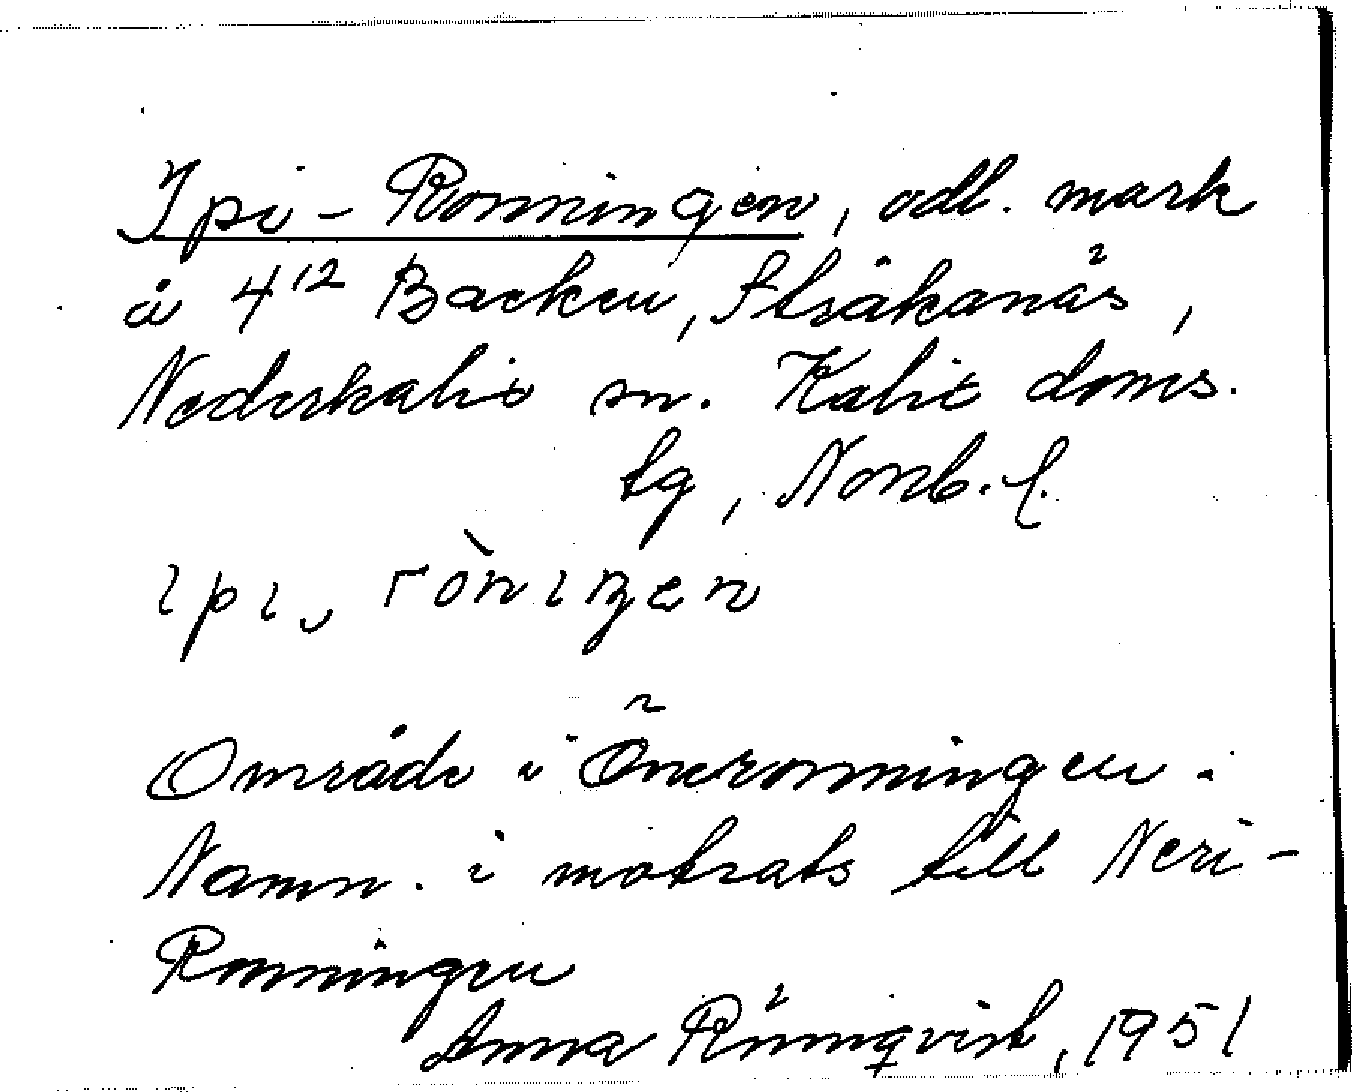 Ipi-Ronningen, odl. mark
å 4¹² Backen, Stråkanäs,
Nederkalix sn. Kalix doms.
lg, Norrb. l.
ipi, ròniŋen
Område i Öneronningen.
Namn. i motsats till Neri-
Ronningen
Anna Rönnqvist, 1951